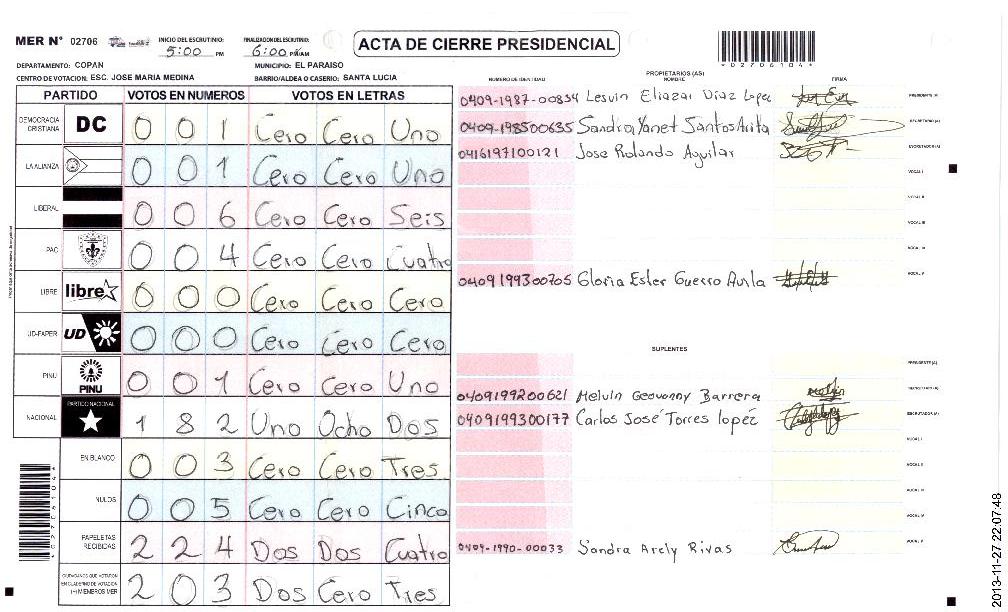 MER N° 02706 INICIO DEL ESCRUTINIO: 5:00 PM FINALIZACION DEL ESCRUTINIO: 6:00 PM/AM ACTA DE CIERRE PRESIDENCIAL
*02706104*
DEPARTAMENTO: COPAN MUNICIPIO: EL PARAISO
CENTRO DE VOTACION: ESC. JOSE MARIA MEDINA BARRIO/ALDEA O CASERIO: SANTA LUCIA
PARTIDO VOTOS EN NUMEROS VOTOS EN LETRAS
DEMOCRACIA CRISTIANA DC 0 0 1 Cero Cero Uno
LA ALIANZA 0 0 1 Cero Cero Uno
LIBERAL 0 0 6 Cero Cero Seis
PAC 0 0 4 Cero Cero Cuatro
LIBRE libre 0 0 0 Cero Cero Cero
UD-FAPER UD 0 0 0 Cero Cero Cero
PINU PINU 0 0 1 Cero Cero Uno
NACIONAL PARTIDO NACIONAL 1 8 2 Uno Ocho Dos
EN BLANCO 0 0 3 Cero Cero Tres
NULOS 0 0 5 Cero Cero Cinco
PAPELETAS RECIBIDAS 2 2 4 Dos Dos Cuatro
CIUDADANOS QUE VOTARON EN CUADERNO DE VOTACION (+) MIEMBROS MER 2 0 3 Dos Cero Tres
*02706104*
NUMERO DE IDENTIDAD PROPIETARIOS (AS) NOMBRE FIRMA
0409-1987-00834 Lesvin Eliazar Diaz Lopez PRESIDENTE (A)
0409-198500635 Sandra Yanet Santos Arita SECRETARIO (A)
0416197100121 Jose Rolando Aguilar ESCRUTADOR (A)
VOCAL I
VOCAL II
VOCAL III
VOCAL IV
0409199300705 Gloria Ester Guerro Avila VOCAL V
SUPLENTES
PRESIDENTE (A)
0409199200621 Melvin Geovanny Barrera SECRETARIO (A)
0409199300177 Carlos José Torres lopéz ESCRUTADOR (A)
VOCAL I
VOCAL II
VOCAL III
VOCAL IV
0409-1990-00033 Sandra Arely Rivas VOCAL V
2013-11-27 22:07:48